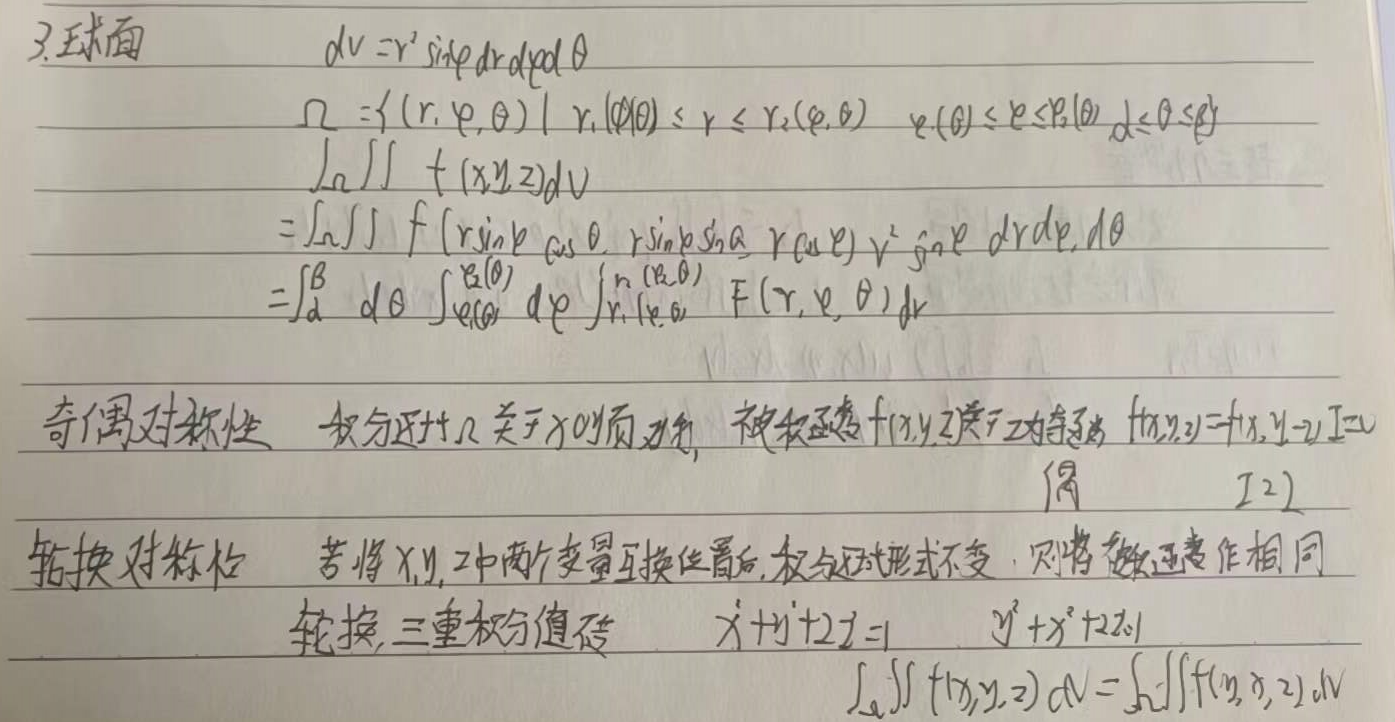 3.球面 dv=r² sinφ dr dφ dθ
Ω={(r,φ,θ)| r₁(φ,θ)≤r≤r₂(φ,θ) φ₁(θ)≤φ≤φ₂(θ) α≤θ≤β}
∫Ω∫∫ f(x,y,z)dv
=∫Ω∫∫ f(rsinφ cosθ, rsinφ sinθ, rcosφ) r² sinφ dr dφ dθ
=∫αβ dθ ∫φ₁(θ)φ₂(θ) dφ ∫r₁(φ,θ)r₂(φ,θ) F(r,φ,θ)dr
奇偶对称性 积分区域Ω关于xoy面对称, 被积函数f(x,y,z)关于z为奇函数 f(x,y,z)=f(x,y,-z) I=0
偶 I=2
轮换对称性 若将x,y,z中两个变量互换位置后,积分区域形式不变,则将被积函数作相同
轮换,三重积分值不变 x²+y²+2z²=1 y²+x²+2z²=1
∫Ω∫∫ f(x,y,z)dV=∫Ω∫∫f(y,x,z)dV